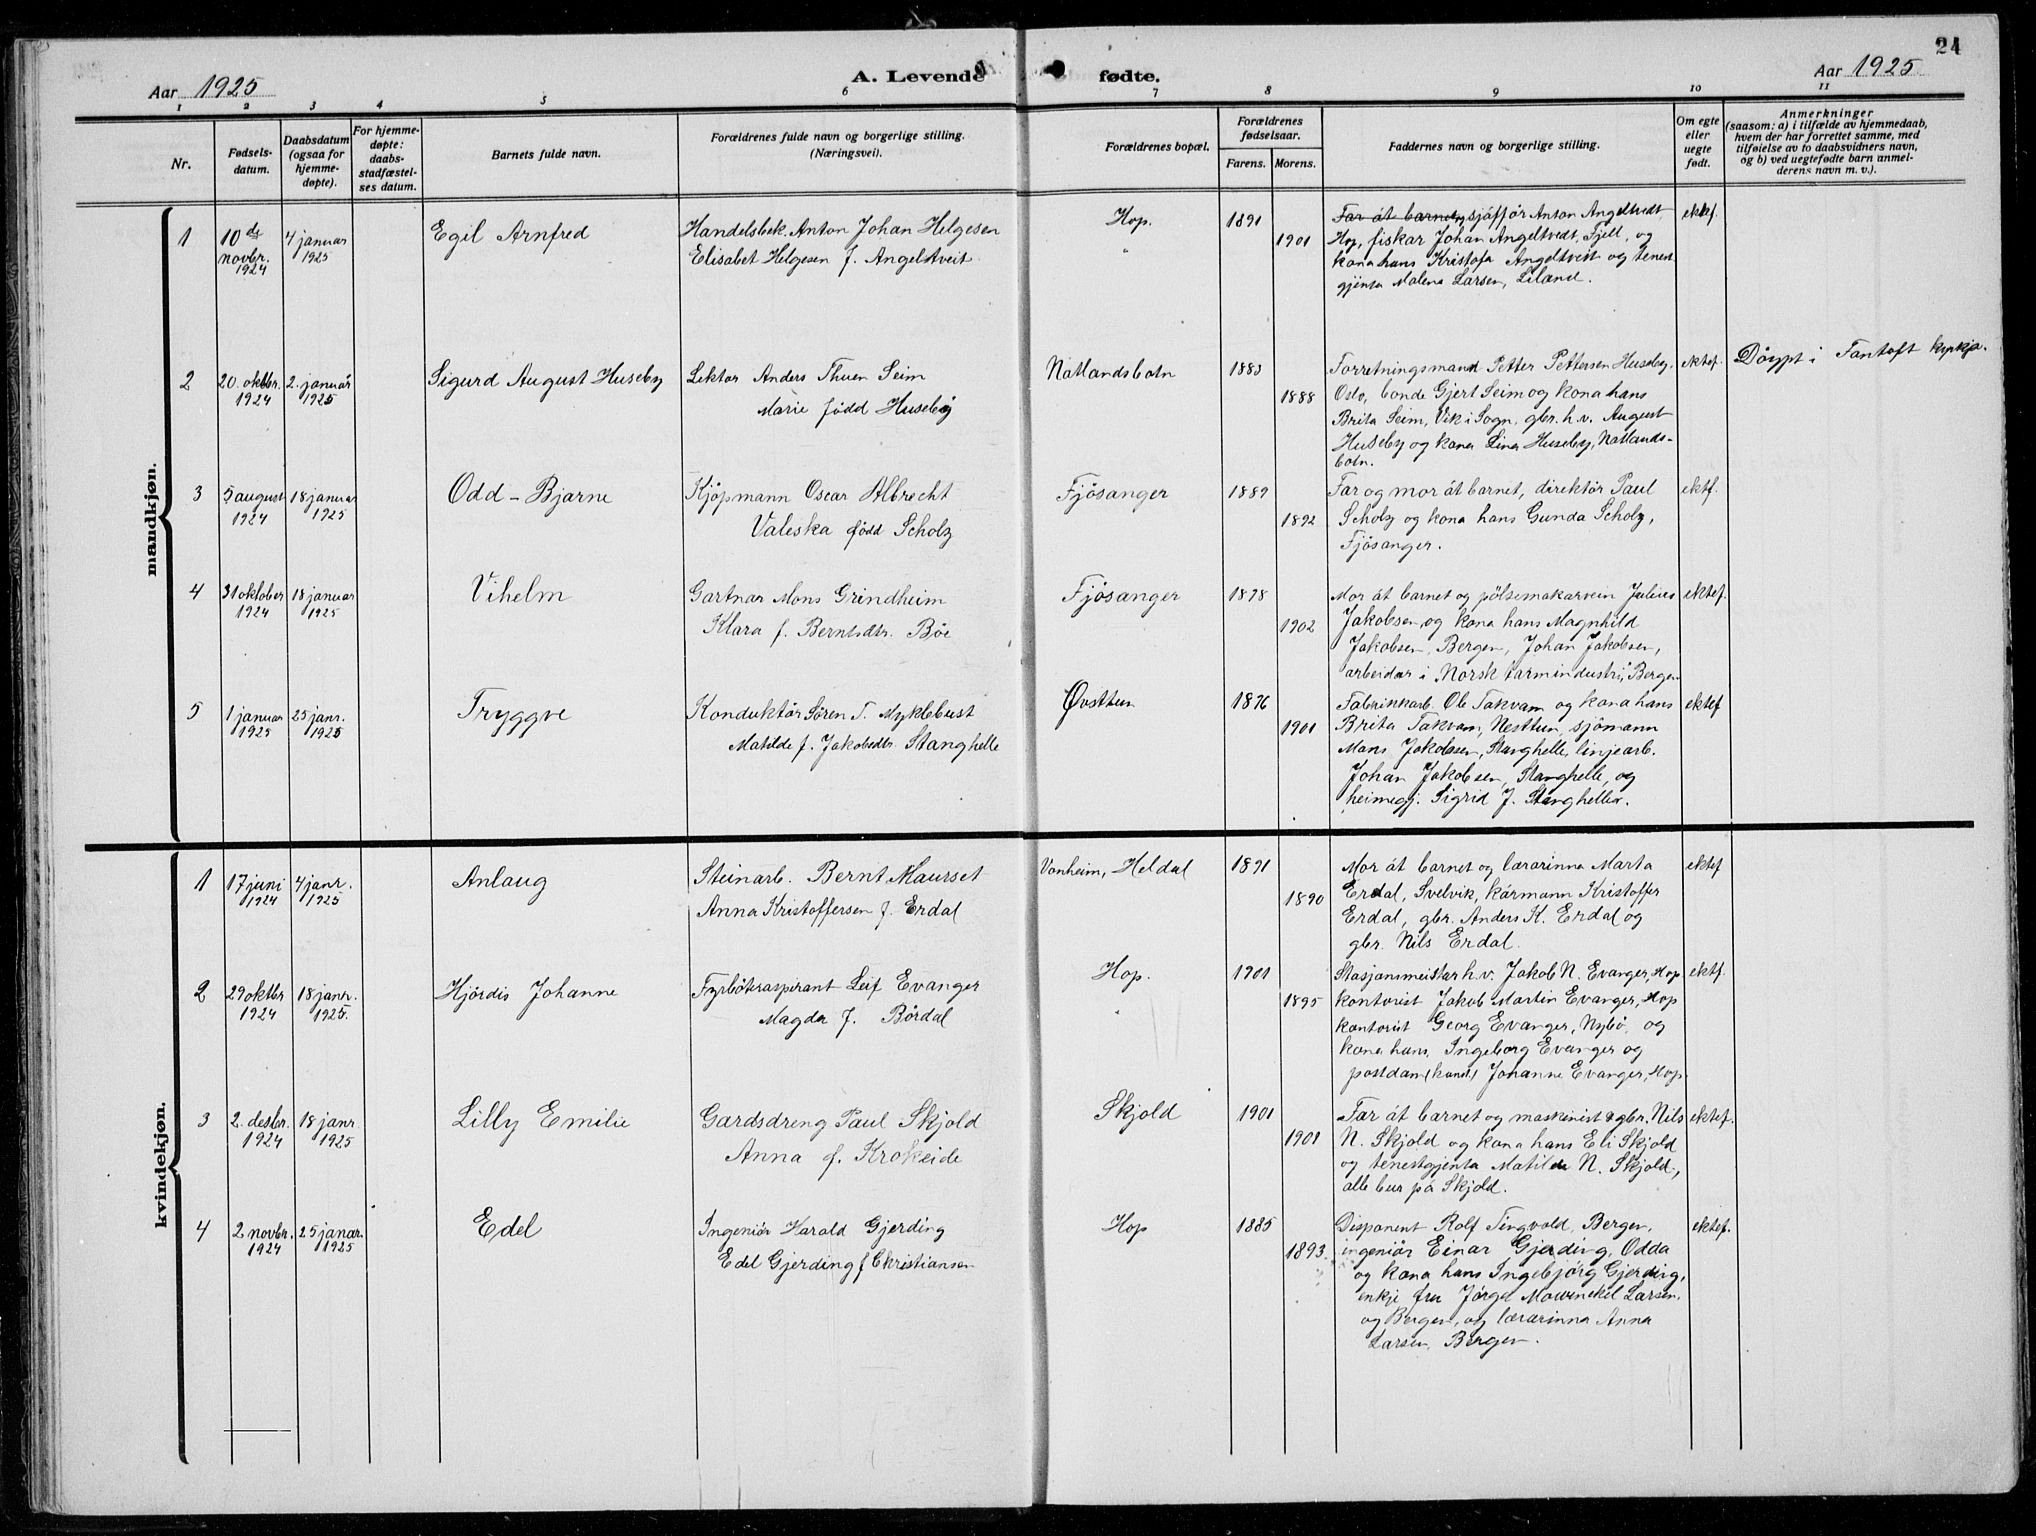 24
Aar 1925
A. Levende fødte.
Aar 1925
1 2 3 4 5 6 7 8 9 10 11
Nr.
Fødsels-
datum.
Daabsdatum
(ogsaa for
hjemme-
døpte).
For hjemme-
døpte:
daabs-
stadfæstel-
ses datum.
Barnets fulde navn.
Forældrenes fulde navn og borgerlige stilling.
(Næringsvei).
Forældrenes bopæl.
Forældrenes
fødselsaar.
Farens. Morens.
Faddernes navn og borgerlige stilling.
Om egte
eller
uegte
født.
Anmerkninger
(saasom: a) i tilfælde av hjemmedaab,
hvem der har forrettet samme, med
tilføielse av to daabsvidners navn,
og b) ved uegtefødte barn anmel-
derens navn m. v.).
mandkjøn.
1
10de
novbr.
1924
4 januar
1925
Egil Arnfred
Handelsbek. Anton Johan Helgesen
Elisabet Helgesen f. Angeltveit
Hop.
"
1891
1901
Far åt barnet, sjåffør Anton Angeltvedt
Hop, fiskar Johan Angeltvedt, Fjell, og
kona hans Kristofa Angeltveit og tenest-
gjenta Malena Larsen, Liland.
ektef.
2
20. oktbr.
1924
2. januar
1925
Sigurd August Huseby
Lektor Anders Thuen Seim
Marie fødd Huseby
Natlandsbotn
1883
1888
Forretningsmand Petter Pettersen Huseby,
Oslo, bonde Gjert Seim og kona hans
Brita Seim, Vik i Sogn, gbr. h.v. August
Huseby og kona Lina Huseby, Natlands-
botn.
ektef.
Döypt i Fantoft kyrkje.
3
5 august
1924
18 januar
1925
Odd - Bjarne
Kjöpmann Oscar Albrecht
Valeska fødd Scholz
Fjösanger
1889
1892
Far og mor åt barnet, direktör Paul
Scholz og kona hans Gunda Scholz,
Fjösanger.
ektf.
4
31 oktober
1924
18 januar
1925
Vihelm
Gartnar Mons Grindheim
Klara f. Berntsdtr. Böe
Fjösanger
1878
1902
Mor åt barnet og pölsemakarsvein Julius
Jakobsen og kona hans Magnhild
Jakobsen, Bergen, Johan Jakobsen,
arbeidar i Norsk tarmindustri, Bergen
ektef.
5
1 januar
1925
25 janr.
1925
Tryggve
Konduktör Sören T. Myklebust
Matilde f. Jakobsdtr. Stanghelle
Øvsttun
1876
1901
Fabrikkarb. Ole Takvam og kona hans
Brita Takvam, Nesttun, sjömann
Mons Jakobsen, Stanghelle, linjearb.
Johan Jakobsen, Stanghelle, og
heimegj. Sigrid J. Stanghelle.
ektef
kvindekjøn.
1
17 juni
1924
4 janr.
1925
Anlaug
Steinarb. Bernt Maurset
Anna Kristoffersen f. Erdal
Vonheim, Heldal
1891
1890
Mor åt barnet og lærarinna Marta
Erdal, Svelvik, kårmann Kristoffer
Erdal, gbr. Anders K. Erdal og
gbr. Nils Erdal.
ektef
2
29 oktbr
1924
18 janr.
1925.
Hjördis Johanne
Fyrböteraspirant Leif Evanger
Magda f. Bördal
Hop.
"
1901
1895
Stasjonsmeistar h.v. Jakob N. Evanger, Hop
kontorist Jakob Martin Evanger, Hop
kontorist Georg Evanger, Nybö, og
kona hans, Ingeborg Evanger og
postdam (kand.) Johanne Evanger, Hop
ektf.
3
2. desbr.
1924
18 janr
1925
Lilly Emilie
Gardsdreng Paul Skjold
Anna f. Krokeide
Skjold
1901
1901
Far åt barnet og maskinist & gbr. Nils
N. Skjold og kona hans Eli Skjold
og tenestgjenta Matilde N. Skjold,
alle bur på Skjold.
ektef.
4
2 novbr.
1924
25 januar.
1925
Edel
Ingeniör Harald Gjerding
Edel Gjerding f Christiansen
Hop
1885
1893.
Disponent Rolf Tingvold, Bergen,
ingeniör Einar Gjerding, Odda
og kona hans Ingebjörg Gjerding,
enkje fru Jörga Mowinckel Larsen,
og Bergen, og lærarinna Anna
Larsen, Bergen.
ektef.